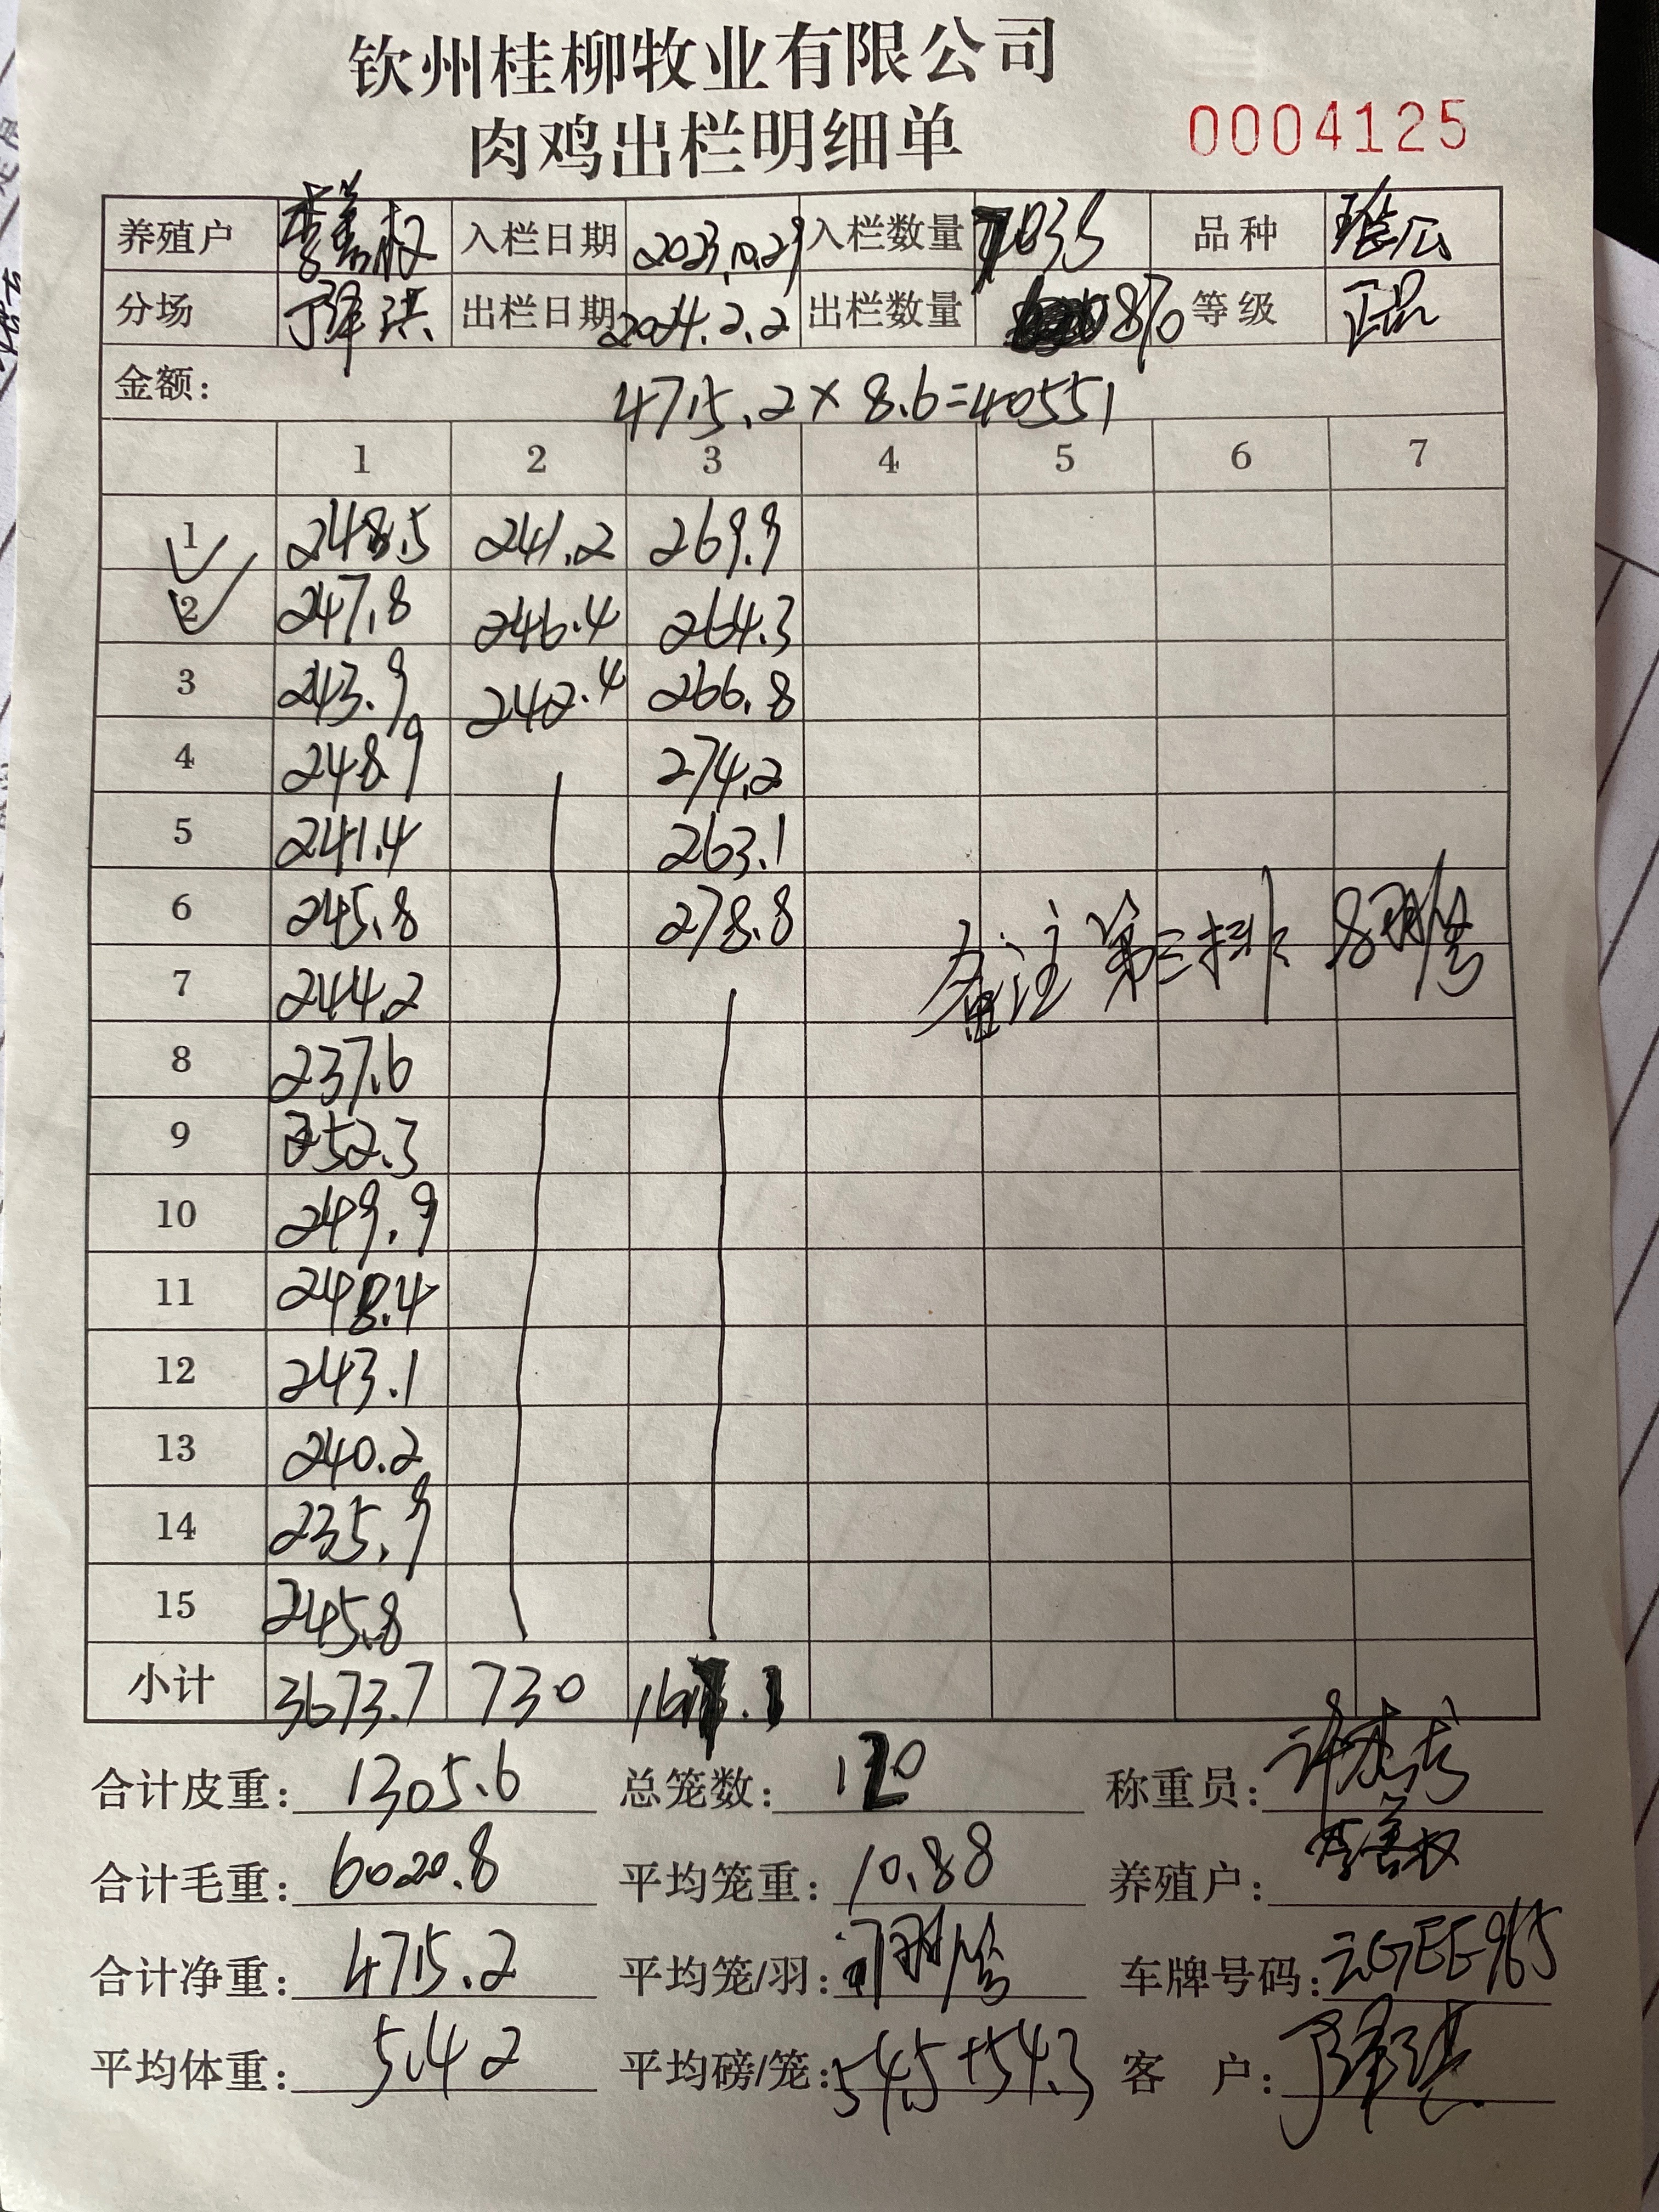 钦州桂柳牧业有限公司
肉鸡出栏明细单
0004125
养殖户 李善权 入栏日期 2023.10.29 入栏数量 7035 品种 瑶公
分场 丁泽洪 出栏日期 2024.2.2 出栏数量 870 等级 正品
金额: 4715.2×8.6=40551
1 2 3 4 5 6 7
1 248.5 241.2 269.9
2 247.8 246.4 264.3
3 243.9 242.4 266.8
4 248.9 274.2
5 241.4 263.1
6 245.8 278.8
备注第三排 8羽/笼
7 244.2
8 237.6
9 252.3
10 249.9
11 248.4
12 243.1
13 240.2
14 235.9
15 245.8
小计 3673.7 730 1617.1
合计皮重: 1305.6 总笼数: 120 称重员:
合计毛重: 6020.8 平均笼重: 10.88 养殖户: 李善权
合计净重: 4715.2 平均笼/羽: 7羽/笼 车牌号码: 云GEE965
平均体重: 5.42 平均磅/笼: 54.5+54.3 客户: 丁泽洪